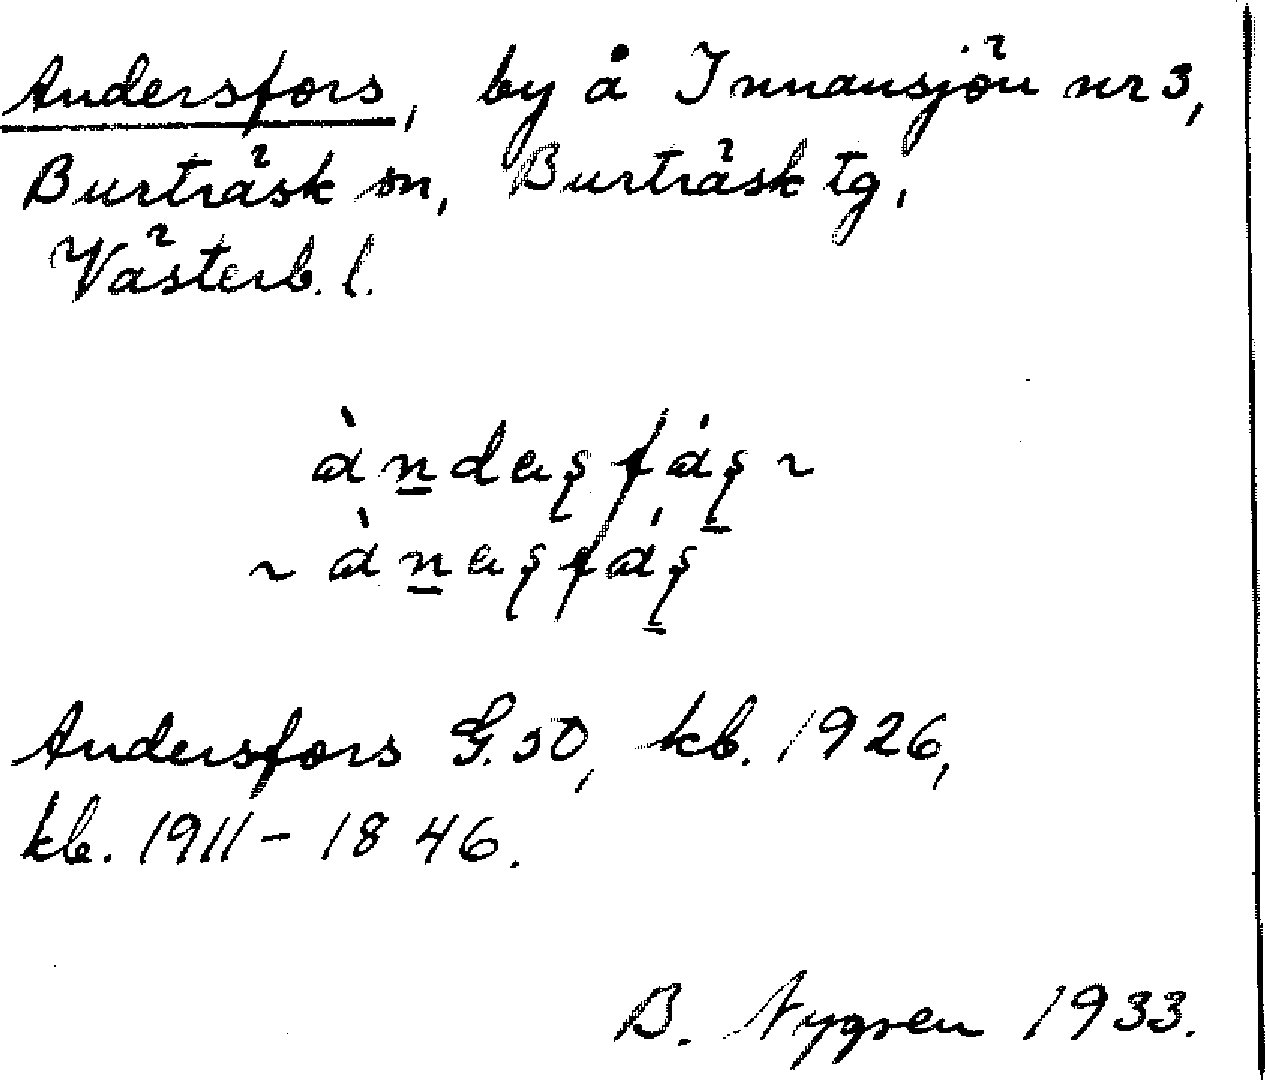 Andersfors, by å Innansjön nr 3,
Burträsk sn, Burträsk tg,
Västerb. l.
àn̲daʂfáʂ̲ ~
~ àn̲aʂfáʂ̲
Andersfors G.30, kb. 1926,
kb. 1911-1846.
B. Nygren 1933.